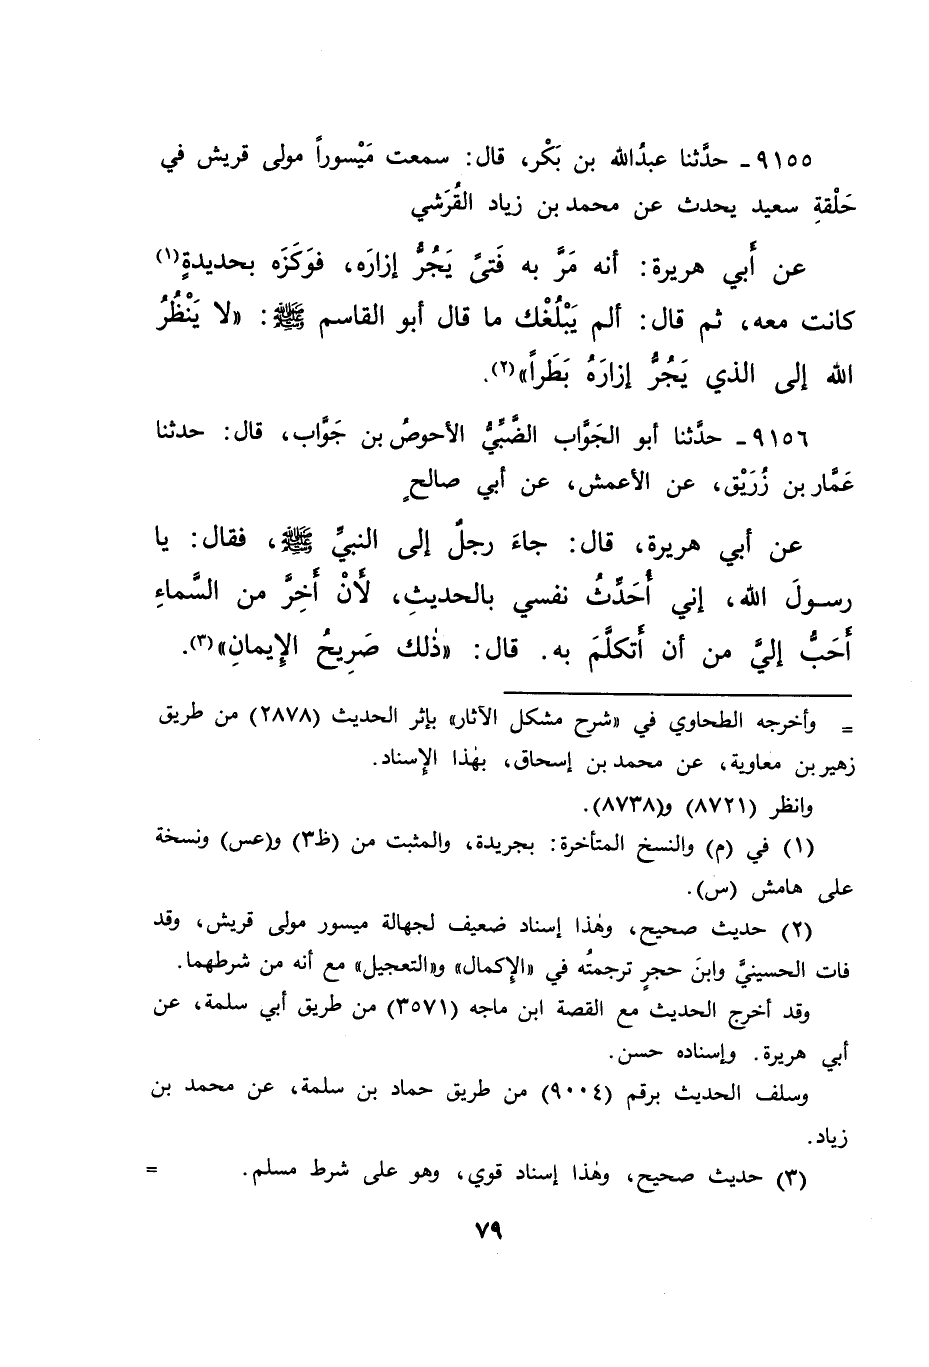 ٩١٥٥ـ حدَّثنا عبدُالله بن بَكْر، قال: سمعت مَيْسوراً مولى قريش في
حَلْقةِ سعيد يحدث عن محمد بن زياد القُرَشي
عن أَبي هريرة: أنه مَرَّ به فَتىً يَجُرُّ إزارَه، فوَكَزَه بحديدةٍ(١)
كانت معه، ثم قال: ألم يَبْلُغْك ما قال أبو القاسم ﷺ: «لا يَنْظُرُ
الله إلى الذي يَجُرُّ إزارَهُ بَطَراً»(٢).
٩١٥٦ـ حدَّثنا أبو الجَوَّاب الضَّبِّيُّ الأحوصُ بن جَوَّاب، قال: حدثنا
عَمَّار بن زُرَيْق، عن الأعمش، عن أبي صالحٍ
عن أبي هريرة، قال: جاءَ رجلٌ إلى النبيِّ ﷺ، فقال: يا
رسولَ الله، إني أُحَدِّثُ نفسي بالحديثِ، لَأَنْ أَخِرَّ من السَّماءِ
أَحَبُّ إليَّ من أن أَتكلَّمَ به. قال: «ذٰلك صَرِيحُ الإيمانِ»(٣).
= وأخرجه الطحاوي في «شرح مشكل الآثار» بإثر الحديث (٢٨٧٨) من طريق
زهير بن معاوية، عن محمد بن إسحاق، بهٰذا الإسناد.
وانظر (٨٧٢١) و(٨٧٣٨).
(١) في (م) والنسخ المتأخرة: بجريدة، والمثبت من (ظ٣) و(عس) ونسخة
على هامش (س).
(٢) حديث صحيح، وهٰذا إسناد ضعيف لجهالة ميسور مولى قريش، وقد
فات الحسينيَّ وابنَ حجرٍ ترجمتُه في «الإكمال» و«التعجيل» مع أنه من شرطهما.
وقد أخرج الحديث مع القصة ابن ماجه (٣٥٧١) من طريق أبي سلمة، عن
أبي هريرة. وإسناده حسن.
وسلف الحديث برقم (٩٠٠٤) من طريق حماد بن سلمة، عن محمد بن
زياد.
(٣) حديث صحيح، وهٰذا إسناد قوي، وهو على شرط مسلم. =
٧٩